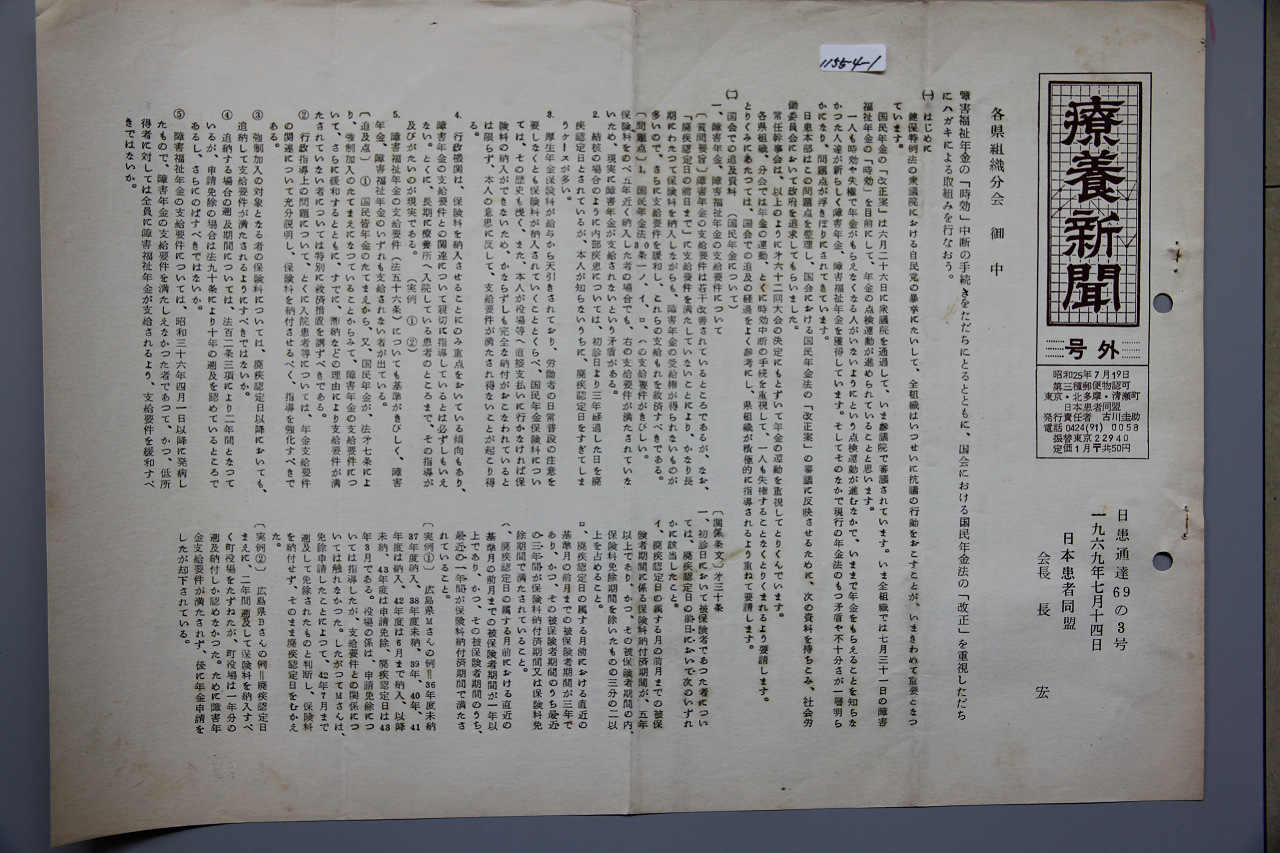 11554-1
療養新聞
号外
昭和25年7月19日
第三種郵便物認可
東京・北多摩・清瀬町
日本患者同盟
発行責任者 古川圭助
電話0424(91)0058
振替東京22940
定価1月〒共50円
日患通達69の3号
一九六九年七月十四日
日本患者同盟
会長 長 宏
各県組織分会 御中
障害福祉年金の「時効」中断の手続きをただちにとるとともに、国会における国民年金法の「改正」を重視しただち
にハガキによる取組みを行なおう。
㈠ はじめに
健保特例法の衆議院における自民党の暴挙にたいして、全組織はいつせいに抗議の行動をおこすことが、いまきわめて重要となつ
ています。
国民年金の「改正案」は六月二十六日に衆議院を通過して、いま参議院で審議されています。いま全組織では七月三十一日の障害
福祉年金の「時効」を目前にして、年金の点検運動が進められていることと思います。
一人も時効や失権で年金がもらえなくなる人がいないようにという点検運動が進むなかで、いままで年金をもらえることを知らな
かつた人達が新らしく障害年金や障害福祉年金を獲得しています。そしてそのなかで現行の年金法のもつ矛盾や不十分さが一層明ら
かになり、問題点が浮きぼりにされてきています。
日患本部はこの問題点を整理し、国会における国民年金法の「改正案」の審議に反映させるために、次の資料を持ちこみ、社会労
働委員会において政府を追求してもらいました。
常任幹事会は、以上のように才六十二回大会の決定にもとずいて年金の運動を重視してとりくんでいます。
各県組織、分会では年金の運動、とくに時効中断の手続を重視して、一人も失権することなくとりくまれるよう要請します。
とりくみにあたつては、国会での追及の経過をよく参考にし、県組織が積極的に指導されるよう重ねて要請します。
㈡ 国会での追及資料 （国民年金について）
一、障害年金、障害福祉年金の支給要件について
〔質問要旨〕障害年金の支給要件は若干改善されているところであるが、なお、
「廃疾認定日の前日まで」に支給要件を満たしていないことにより、かなり長
期にわたつて保険料を納入しながらも、障害年金の受給権が得られないものが
多いので、さらに支給要件を緩和して、これらの支給もれを救済すべきである。
〔問題点〕1. 国民年金法30条一ノイ、ロ、ハの支給要件がきびしい。
保険料をのべ五年近く納入した者の場合でも、右の支給要件が満たされていな
いため、現実に障害年金が支給されないという矛盾がある。
2. 結核の場合のように内部疾患については、初診日より三年経過した日を廃
疾認定日とされているが、本人が知らないうちに、廃疾認定日をすぎてしま
うケースが多い。
3. 厚生年金保険料が給与から天引きされており、労働者の日常普段の注意を
要しなくとも保険料が納入されていくこととくらべ、国民年金保険料につい
ては、その歴史も浅く、また、本人が役場等へ直接支払いに行かなければ保
険料の納入ができないため、かならずしも完全な納付がおこなわれていると
は限らず、本人の意思に反して、支給要件が満たされ得ないことが起こり得
る。
4. 行政機関は、保険料を納入させることにのみ重点をおいている傾向もあり、
障害年金の支給要件との関連について親切に指導しているとは必ずしもいえ
ない。とくに、長期に療養所へ入院している患者のところまで、その指導が
及びがたいのが現実である。（実例 ①②）
5. 障害福祉年金の支給要件（法五十六条）についても基準がきびしく、障害
年金、障害福祉年金のいずれも支給されない者が出ている。
〔追及点〕① 国民皆年金のたてまえから、又、国民年金が、法才七条によ
り、強制加入のたてまえになつていることからみて、障害年金の支給要件につ
いて、さらに緩和するとともに、すでに、滞納などの理由により支給要件が満
たされていない者については特別な救済措置を講ずべきである。
② 行政指導上の問題について、とくに入院患者等については、年金支給要件
の関連について充分説明し、保険料を納付させるべく、指導を強化すべきで
ある。
③ 強制加入の対象となる者の保険料については、廃疾認定日以降においても、
追納して支給要件が満たされるようにすべきではないか。
④ 追納する場合の遡及期間については、法百二条三項により二年間となつて
いるが、申請免除の場合は法九十条により十年の遡及を認めているところで
あるし、さらにのばすべきではないか。
⑤ 障害福祉年金の支給要件については、昭和三十六年四月一日以降に発病し
たもので、障害年金の支給要件を満たしえなかつた者であつて、かつ、低所
得者に対しては全員に障害福祉年金が支給されるよう、支給要件を緩和すべ
きではないか。
〔関係条文〕才三十条
一、初診日において被保険者であつた者につい
ては、廃疾認定日の前日において次のいずれ
かに該当したこと。
イ、廃疾認定日の属する月の前月までの被保
険者期間に係る保険料納付済期間が、五年
以上であり、かつ、その被保険者期間の内、
保険料免除期間を除いたもの三分の二以
上を占めること。
ロ、廃疾認定日の属する月前における直近の
基準月の前月までの被保険者期間が三年で
あり、かつ、その被保険者期間のうち最近
の三年間が保険料納付済期間又は保険料免
除期間で満たされていること。
ハ、廃疾認定日の属する月前における直近の
基準月の前月までの被保険者期間が一年以
上であり、かつ、その被保険者期間のうち、
最近の一年間が保険料納付済期間で満たさ
れていること。
〔実例①〕広島県Mさんの例＝36年度未納
37年度納入、38年度未納、39年、40年、41
年度は納入、42年度は6月まで納入、以降
未納、43年度は申請免除、廃疾認定日は43
年3月である。役場の係は、申請免除につ
いては指導したが、支給要件との関係につ
いては触れなかつた。したがつてMさんは、
免除申請したことによつて、42年7月まで
遡及して免除されたものと判断し、保険料
を納付せず、そのまま廃疾認定日をむかえ
た。
〔実例②〕広島県Bさんの例＝廃疾認定日
まえに、二年間遡及して保険料を納入すべ
く町役場をたずねたが、町役場は一年分の
遡及納付しか認めなかつた。ために障害年
金支給要件が満たされず、後に年金申請を
したが却下されている。